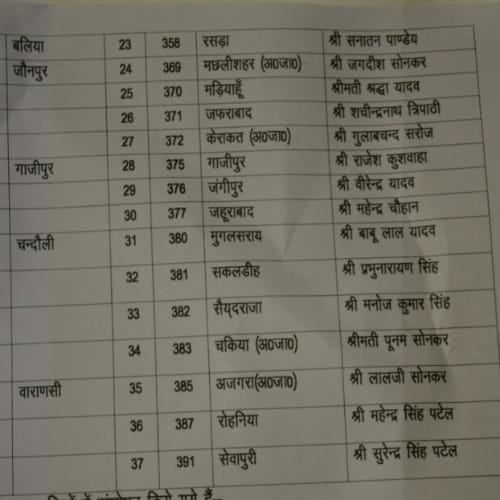 बलिया 23 358 रसड़ा श्री सनातन पाण्डेय
जौनपुर 24 369 मछलीशहर (अ0जा0) श्री जगदीश सोनकर
25 370 मड़ियाहूँ श्रीमती श्रद्धा यादव
26 371 जफराबाद श्री शचीन्द्रनाथ त्रिपाठी
27 372 केराकत (अ0जा0) श्री गुलाबचन्द सरोज
गाजीपुर 28 375 गाजीपुर श्री राजेश कुशवाहा
29 376 जंगीपुर श्री वीरेन्द्र यादव
30 377 जहूराबाद श्री महेन्द्र चौहान
चन्दौली 31 380 मुगलसराय श्री बाबू लाल यादव
32 381 सकलडीह श्री प्रभुनारायण सिंह
33 382 सैयदराजा श्री मनोज कुमार सिंह
34 383 चकिया (अ0जा0) श्रीमती पूनम सोनकर
वाराणसी 35 385 अजगरा(अ0जा0) श्री लालजी सोनकर
36 387 रोहनिया श्री महेन्द्र सिंह पटेल
37 391 सेवापुरी श्री सुरेन्द्र सिंह पटेल